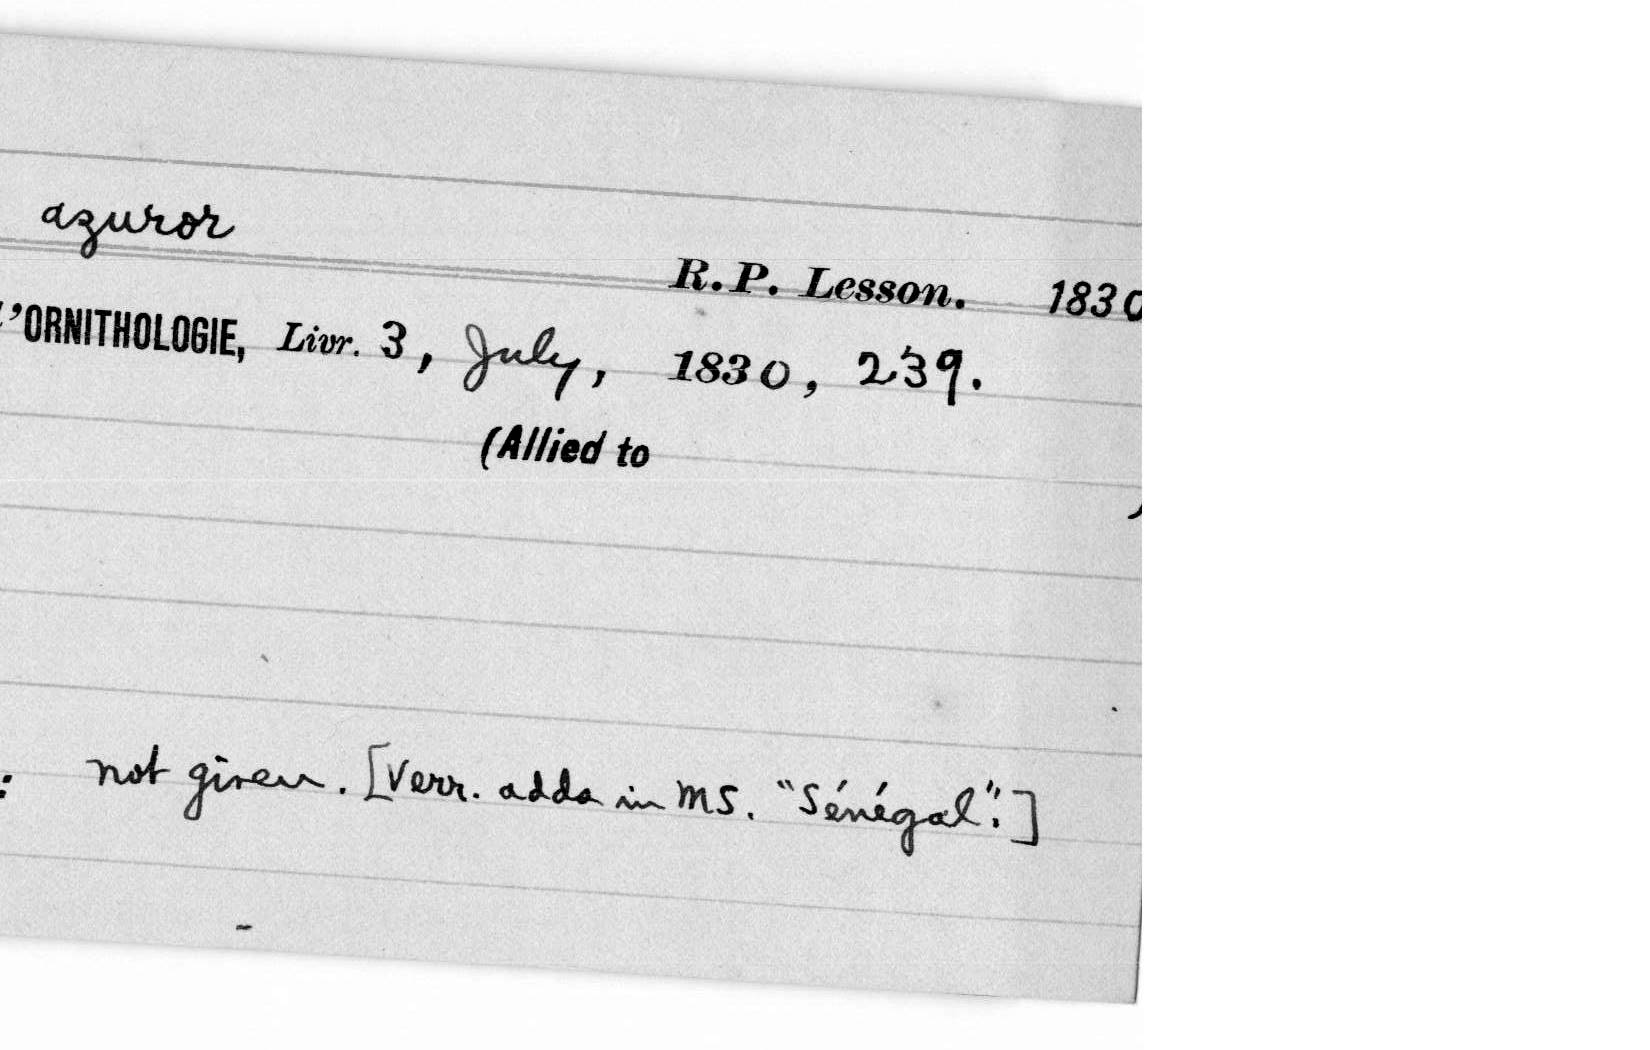 azuror
R.P. Lesson. 1830
L'ORNITHOLOGIE, Livr. 3, July, 1830, 239.
(Allied to
)
: not given. [Verr. adds in MS. "Sénégal".]